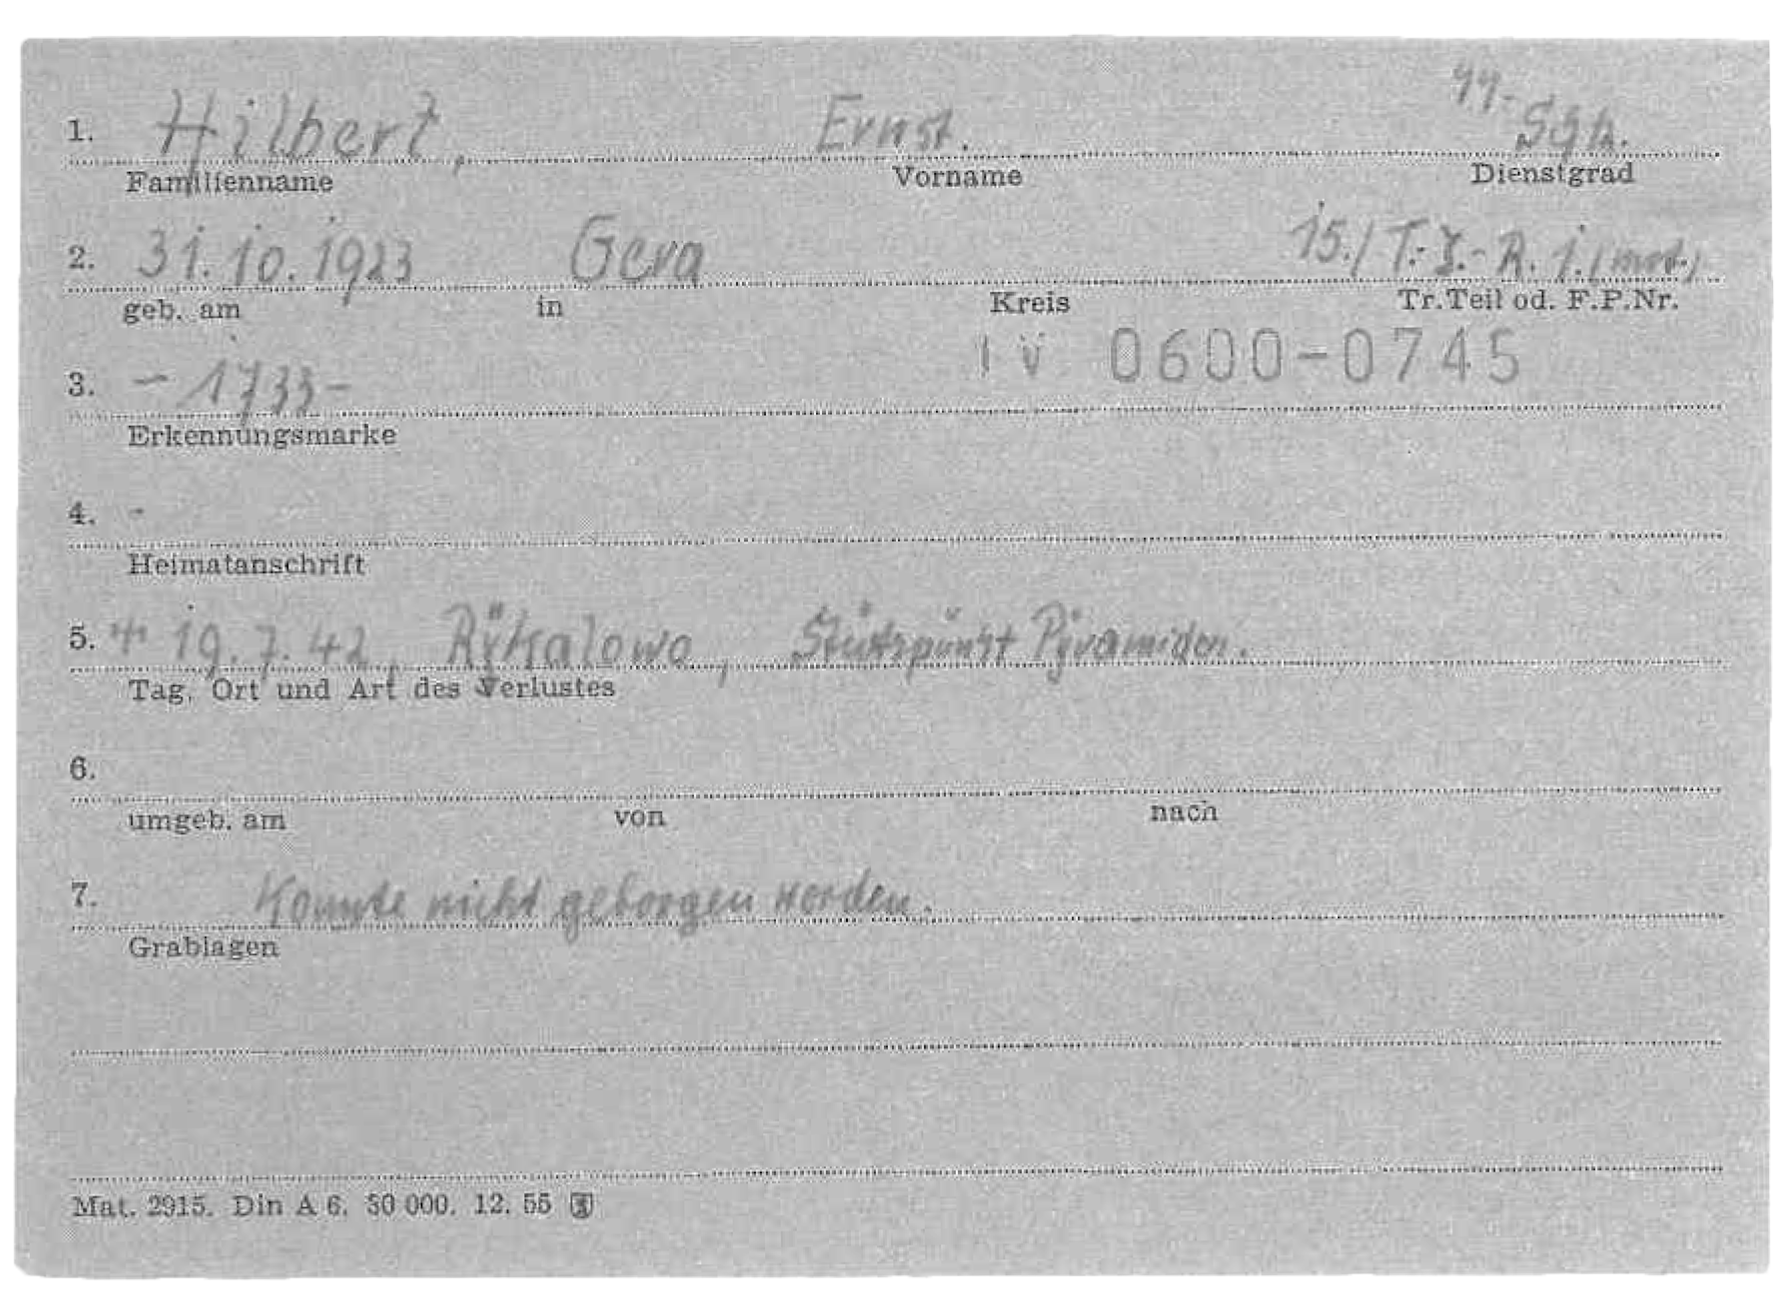 1. Hilbert, Ernst. SS-Sch.
Familienname Vorname Dienstgrad
2. 31.10.1923 Gera 15./T.-I.-R. 1. (mot.)
geb. am in Kreis Tr.Teil od. F.P.Nr.
3. -1733- IV 0600-0745
Erkennungsmarke
4. -
Heimatanschrift
5. 19.7.42, Rykalowo, Stützpunkt Pyramiden.
Tag, Ort und Art des Verlustes
6.
umgeb. am von nach
7. Konnte nicht geborgen werden.
Grablagen
Mat. 2915. Din A 6. 30 000. 12. 55